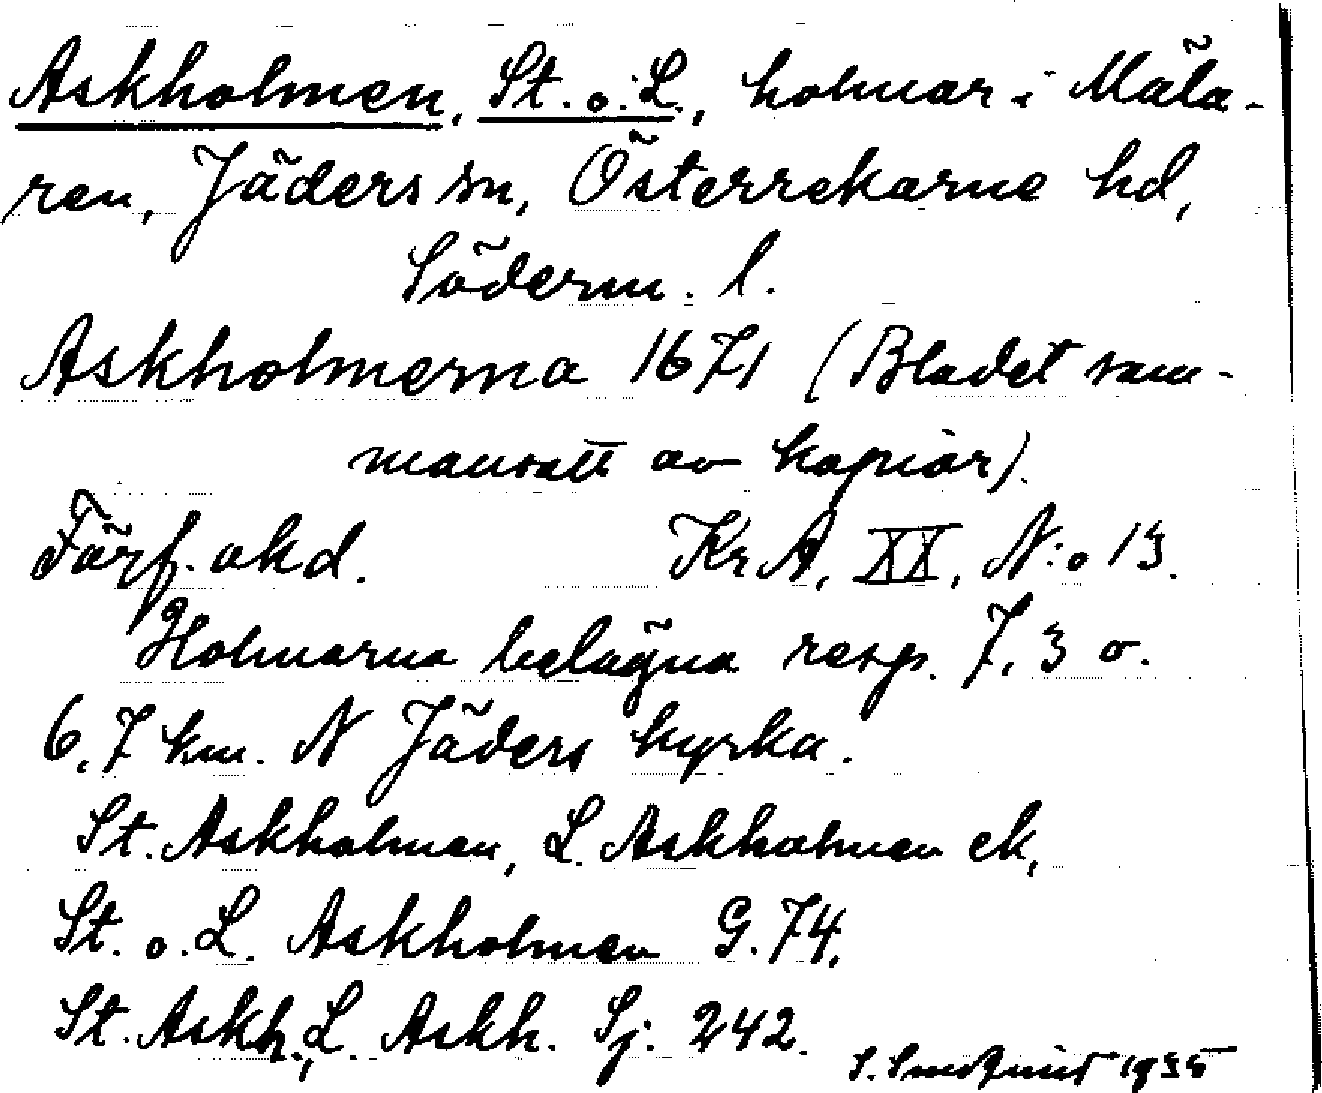 Askholmen, St. o. L., holmar i Mäla-
ren, Jäders sn, Österrekarne hd,
Söderm. l.
Askholmerna 1671 (Bladet sam-
mansatt av kopiar).
Förf. okd. Kr A, XX, N:o 13.
Holmarna belägna resp. 7,3 o.
6,7 km. N Jäders kyrka.
St. Askholmen, L. Askholmen ek,
St. o. L. Askholmen G. 74,
St. Askh., L. Askh. Sj. 242.
S. 1935